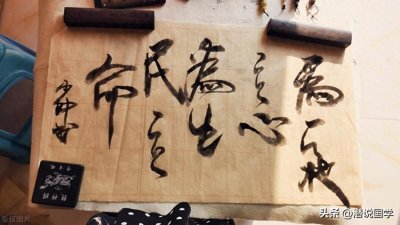 為天地
立心
為生
民立
命
头条 @潜说国学